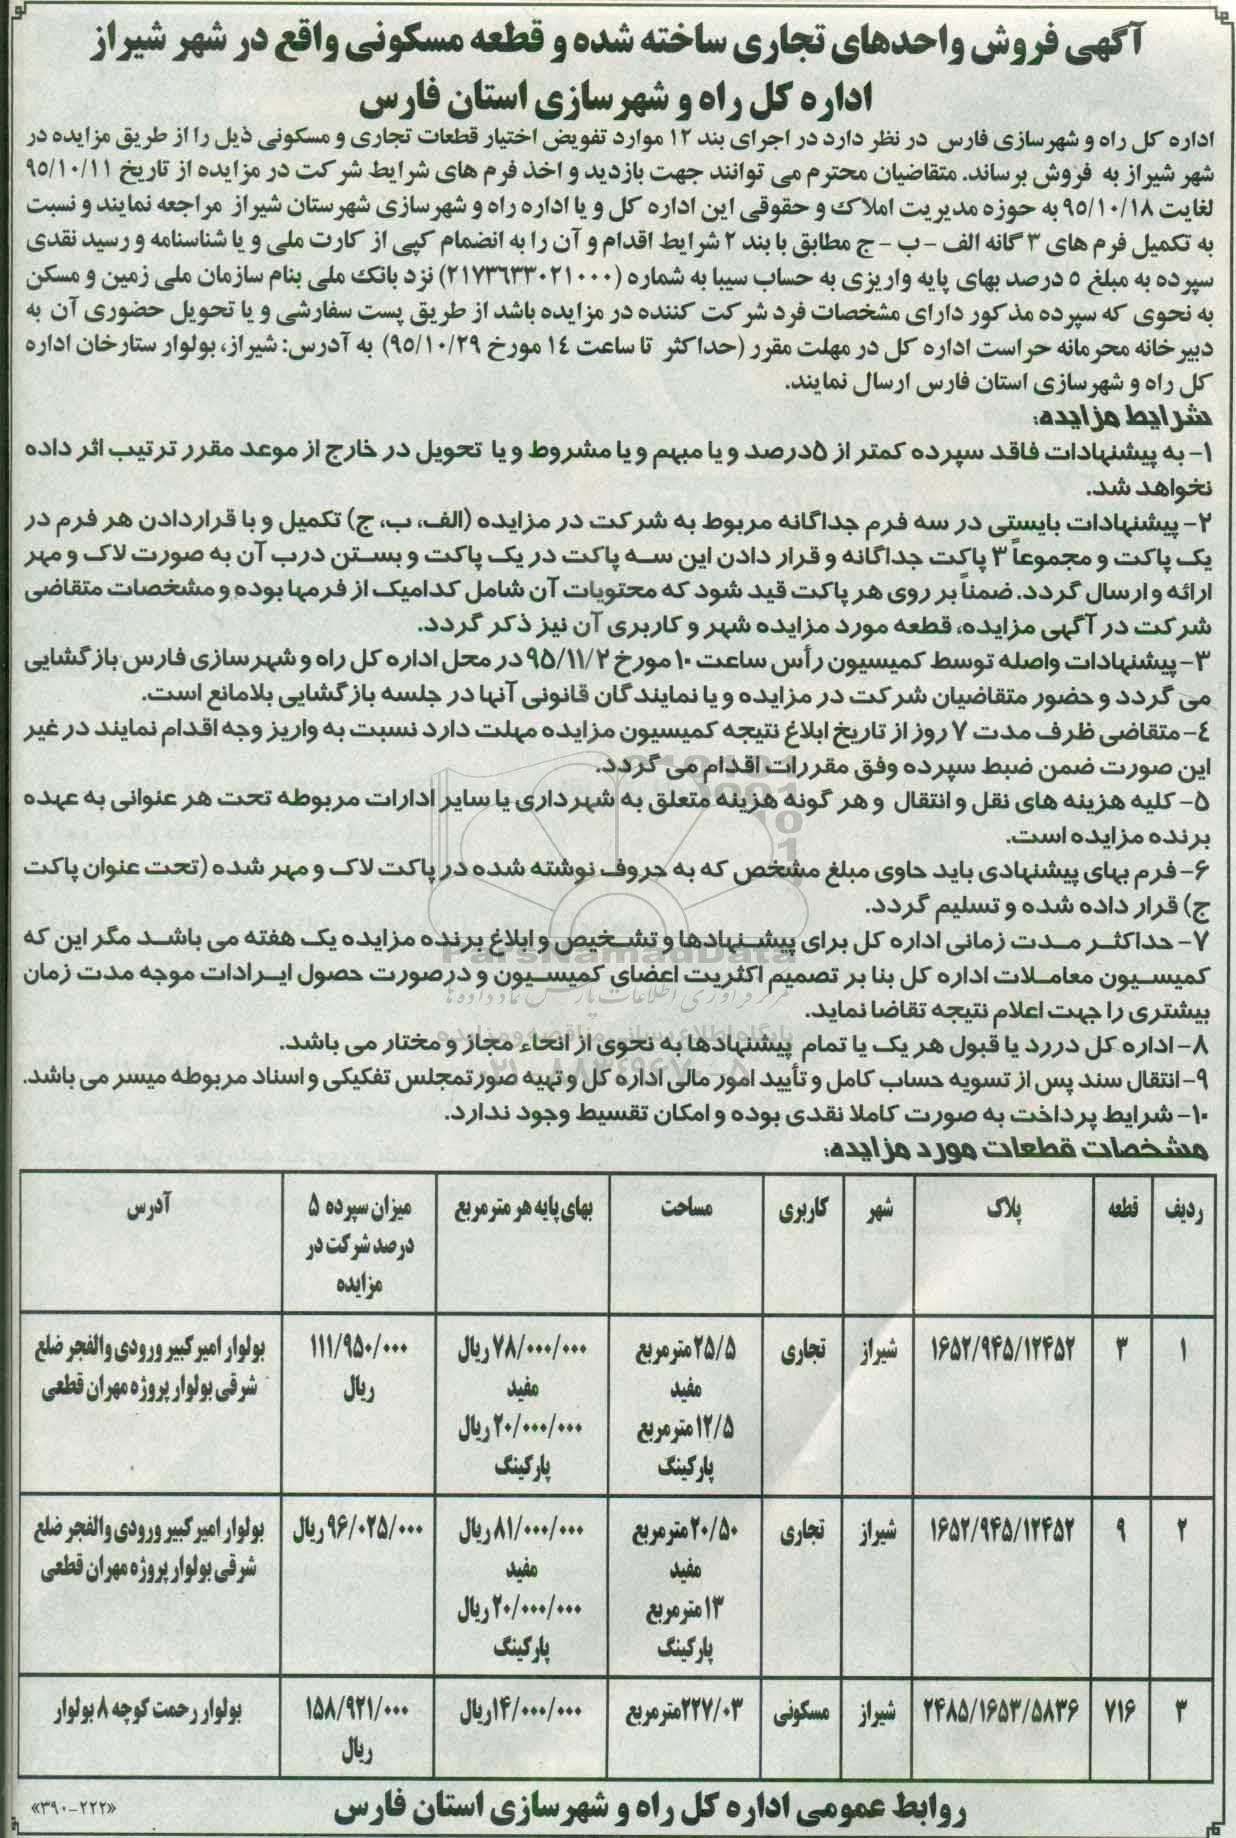 آگهی فروش واحدهای تجاری ساخته شده و قطعه مسکونی واقع در شهر شیراز
اداره کل راه و شهرسازی استان فارس
اداره کل راه و شهرسازی فارس در نظر دارد در اجرای بند ۱۲ موارد تفویض اختیار قطعات تجاری و مسکونی ذیل را از طریق مزایده در
شهر شیراز به فروش برساند. متقاضیان محترم می توانند جهت بازدید و اخذ فرم های شرایط شرکت در مزایده از تاریخ ۹۵/۱۰/۱۱
لغایت ۹۵/۱۰/۱۸ به حوزه مدیریت املاک و حقوقی این اداره کل و یا اداره راه و شهرسازی شهرستان شیراز مراجعه نمایند و نسبت
به تکمیل فرم های ۳ گانه الف - ب - ج مطابق با بند ۲ شرایط اقدام و آن را به انضمام کپی از کارت ملی و یا شناسنامه و رسید نقدی
سپرده به مبلغ ۵ درصد بهای پایه واریزی به حساب سیبا به شماره (۲۱۷۳۶۳۳۰۲۱۰۰۰) نزد بانک ملی بنام سازمان ملی زمین و مسکن
به نحوی که سپرده مذکور دارای مشخصات فرد شرکت کننده در مزایده باشد از طریق پست سفارشی و یا تحویل حضوری آن به
دبیرخانه محرمانه حراست اداره کل در مهلت مقرر (حداکثر تا ساعت ۱۴ مورخ ۹۵/۱۰/۲۹) به آدرس: شیراز، بولوار ستارخان اداره
کل راه و شهرسازی استان فارس ارسال نمایند.
شرایط مزایده:
۱- به پیشنهادات فاقد سپرده کمتر از ۵درصد و یا مبهم و یا مشروط و یا تحویل در خارج از موعد مقرر ترتیب اثر داده
نخواهد شد.
۲- پیشنهادات بایستی در سه فرم جداگانه مربوط به شرکت در مزایده (الف، ب، ج) تکمیل و با قراردادن هر فرم در
یک پاکت و مجموعاً ۳ پاکت جداگانه و قرار دادن این سه پاکت در یک پاکت و بستن درب آن به صورت لاک و مهر
ارائه و ارسال گردد. ضمناً بر روی هر پاکت قید شود که محتویات آن شامل کدامیک از فرمها بوده و مشخصات متقاضی
شرکت در آگهی مزایده، قطعه مورد مزایده شهر و کاربری آن نیز ذکر گردد.
۳- پیشنهادات واصله توسط کمیسیون رأس ساعت ۱۰ مورخ ۹۵/۱۱/۲ در محل اداره کل راه و شهرسازی فارس بازگشایی
می گردد و حضور متقاضیان شرکت در مزایده و یا نمایندگان قانونی آنها در جلسه بازگشایی بلامانع است.
۴- متقاضی ظرف مدت ۷ روز از تاریخ ابلاغ نتیجه کمیسیون مزایده مهلت دارد نسبت به واریز وجه اقدام نمایند در غیر
این صورت ضمن ضبط سپرده وفق مقررات اقدام می گردد.
۵- کلیه هزینه های نقل و انتقال و هر گونه هزینه متعلق به شهرداری یا سایر ادارات مربوطه تحت هر عنوانی به عهده
برنده مزایده است.
۶- فرم بهای پیشنهادی باید حاوی مبلغ مشخص که به حروف نوشته شده در پاکت لاک و مهر شده (تحت عنوان پاکت
ج) قرار داده شده و تسلیم گردد.
۷- حداکثر مدت زمانی اداره کل برای پیشنهادها و تشخیص و ابلاغ برنده مزایده یک هفته می باشد مگر این که
کمیسیون معاملات اداره کل بنا بر تصمیم اکثریت اعضای کمیسیون و درصورت حصول ایرادات موجه مدت زمان
بیشتری را جهت اعلام نتیجه تقاضا نماید.
۸- اداره کل دررد یا قبول هر یک یا تمام پیشنهادها به نحوی از انحاء مجاز و مختار می باشد.
۹- انتقال سند پس از تسویه حساب کامل و تأیید امور مالی اداره کل و تهیه صورتمجلس تفکیکی و اسناد مربوطه میسر می باشد.
۱۰- شرایط پرداخت به صورت کاملا نقدی بوده و امکان تقسیط وجود ندارد.
مشخصات قطعات مورد مزایده:
ردیف قطعه پلاک شهر کاربری مساحت بهای پایه هر مترمربع میزان سپرده ۵ آدرس
درصد شرکت در
مزایده
۱ ۳ ۱۶۵۲/۹۴۵/۱۲۴۵۲ شیراز تجاری ۲۵/۵مترمربع ۷۸/۰۰۰/۰۰۰ ریال ۱۱۱/۹۵۰/۰۰۰ بولوار امیرکبیر ورودی والفجر ضلع
مفید مفید ریال شرقی بولوار پروژه مهران قطعی
۱۲/۵مترمربع ۲۰/۰۰۰/۰۰۰ ریال
پارکینگ پارکینگ
۲ ۹ ۱۶۵۲/۹۴۵/۱۲۴۵۲ شیراز تجاری ۲۰/۵۰مترمربع ۸۱/۰۰۰/۰۰۰ ریال ۹۶/۰۲۵/۰۰۰ ریال بولوار امیرکبیر ورودی والفجر ضلع
مفید مفید شرقی بولوار پروژه مهران قطعی
۱۳مترمربع ۲۰/۰۰۰/۰۰۰ ریال
پارکینگ پارکینگ
۳ ۷۱۶ ۲۴۸۵/۱۶۵۳/۵۸۳۶ شیراز مسکونی ۲۲۷/۰۳مترمربع ۱۴/۰۰۰/۰۰۰ریال ۱۵۸/۹۲۱/۰۰۰ بولوار رحمت کوچه ۸ بولوار
ریال
روابط عمومی اداره کل راه و شهرسازی استان فارس
«۳۹۰-۲۲۲»
ParsNamadData
مرکز فرآوری اطلاعات پارس نماد داده ها
پایگاه اطلاع رسانی مناقصه و مزایده